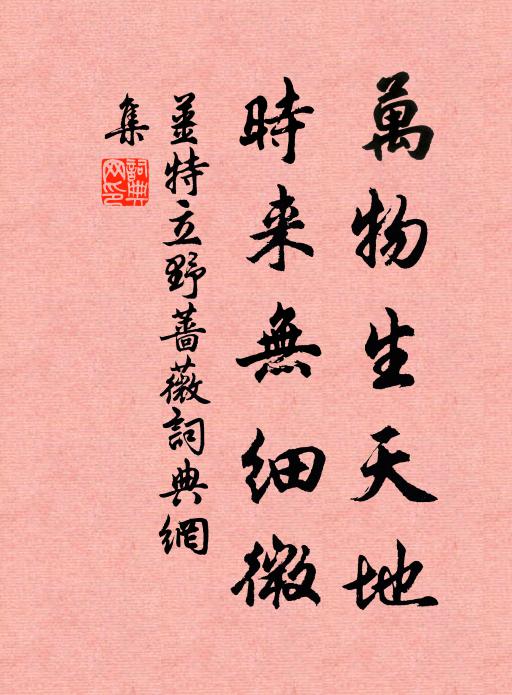 萬物生天地
時来無細微
姜特立野薔薇詞典網
集
詞典网印